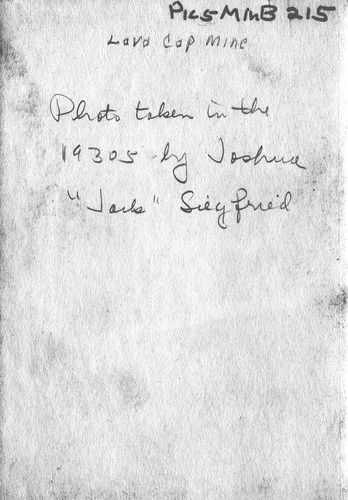 Pics-MinB 215
Lava Cap Mine
Photo taken in the
1930s by Joshua
"Jack" Siegfried